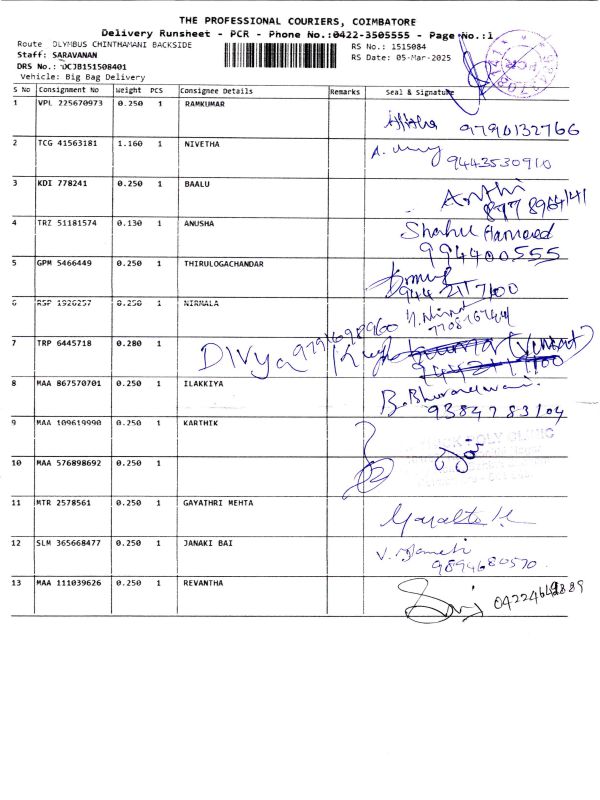 THE PROFESSIONAL COURIERS, COIMBATORE
Delivery Runsheet - PCR - Phone No.:0422-3505555 - Page No.:1
Route OLYMBUS CHINTHAMANI BACKSIDE
RS No.: 1515084
Staff: SARAVANAN
RS Date: 05-Mar-2025
DRS No.: DCJB151508401
Vehicle: Big Bag Delivery
S No Consignment No Weight PCS Consignee Details Remarks Seal & Signature
1 VPL 225670973 0.250 1 RAMKUMAR
9790132766
2 TCG 41563181 1.160 1 NIVETHA
9443530910
3 KDI 778241 0.250 1 BAALU
4 TRZ 51181574 0.130 1 ANUSHA Shahul Hameed
994400555
5 GPM 5466449 0.250 1 THIRULOGACHANDAR
6 RSP 1926257 0.250 1 NIRMALA
7 TRP 6445718 0.280 1 Divya 9791698960
8 MAA 867570701 0.250 1 ILAKKIYA B. Bhuvaneswari
9384783104
9 MAA 109619990 0.250 1 KARTHIK
10 MAA 576898692 0.250 1
11 MTR 2578561 0.250 1 GAYATHRI MEHTA
12 SLM 365668477 0.250 1 JANAKI BAI
9894680570
13 MAA 111039626 0.250 1 REVANTHA